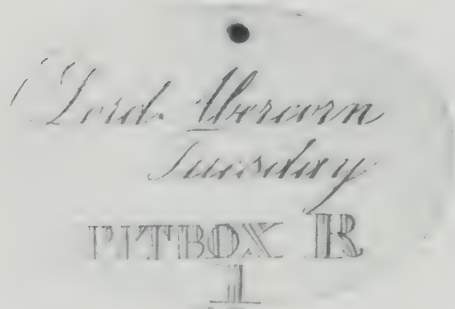 Lord Abercorn
Tuesday
PITBOX R
1